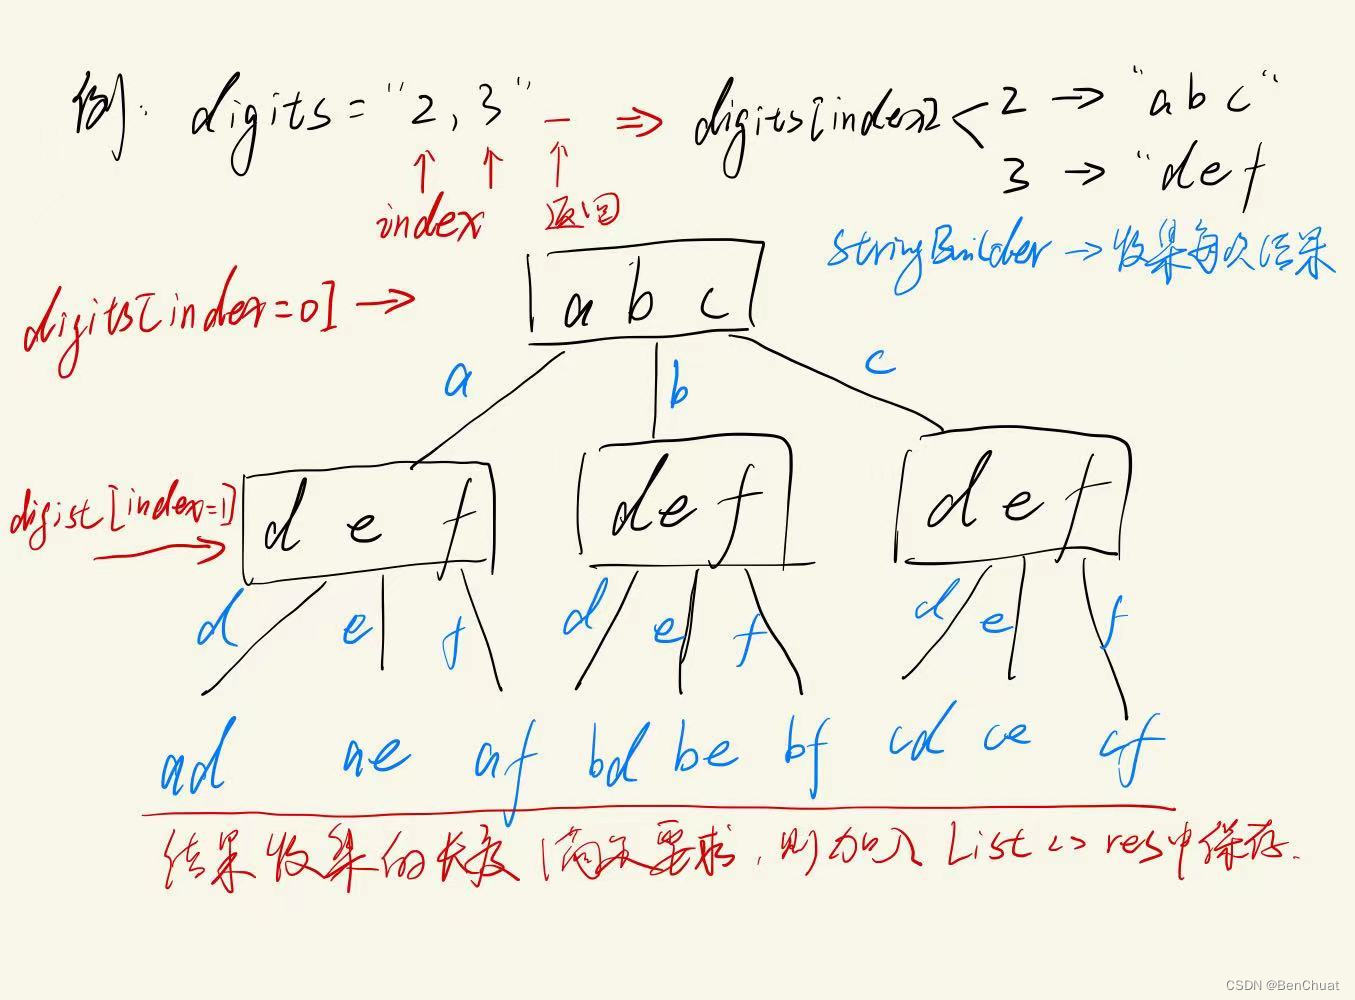 例: digits = "2, 3" _ ⇒ digits[index] < 2 → "a b c"
3 → "d e f
index 返回
StringBuilder → 收集每次结果
digits[index=0] → a b c
a b c
digist[index=1] → d e f d e f d e f
d e f d e f d e f
ad ae af bd be bf cd ce cf
结果收集的长度满足要求, 则加入 List<> res中保存.
CSDN @BenChuat